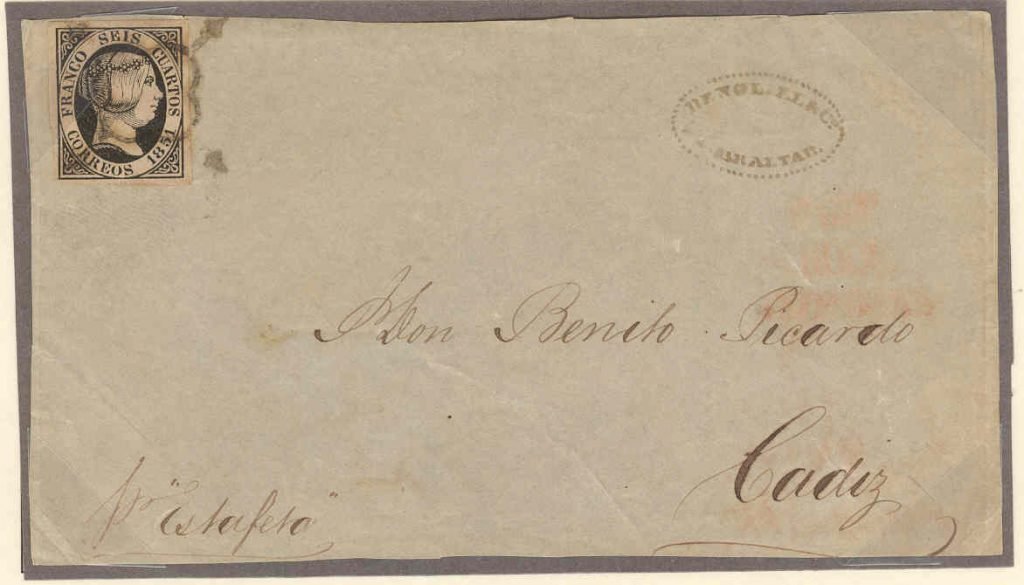 FRANCO SEIS CUARTOS
CORREOS 1851
GIBRALTAR.
Don Benito Picardo
Cadiz
pr "Estafeta"